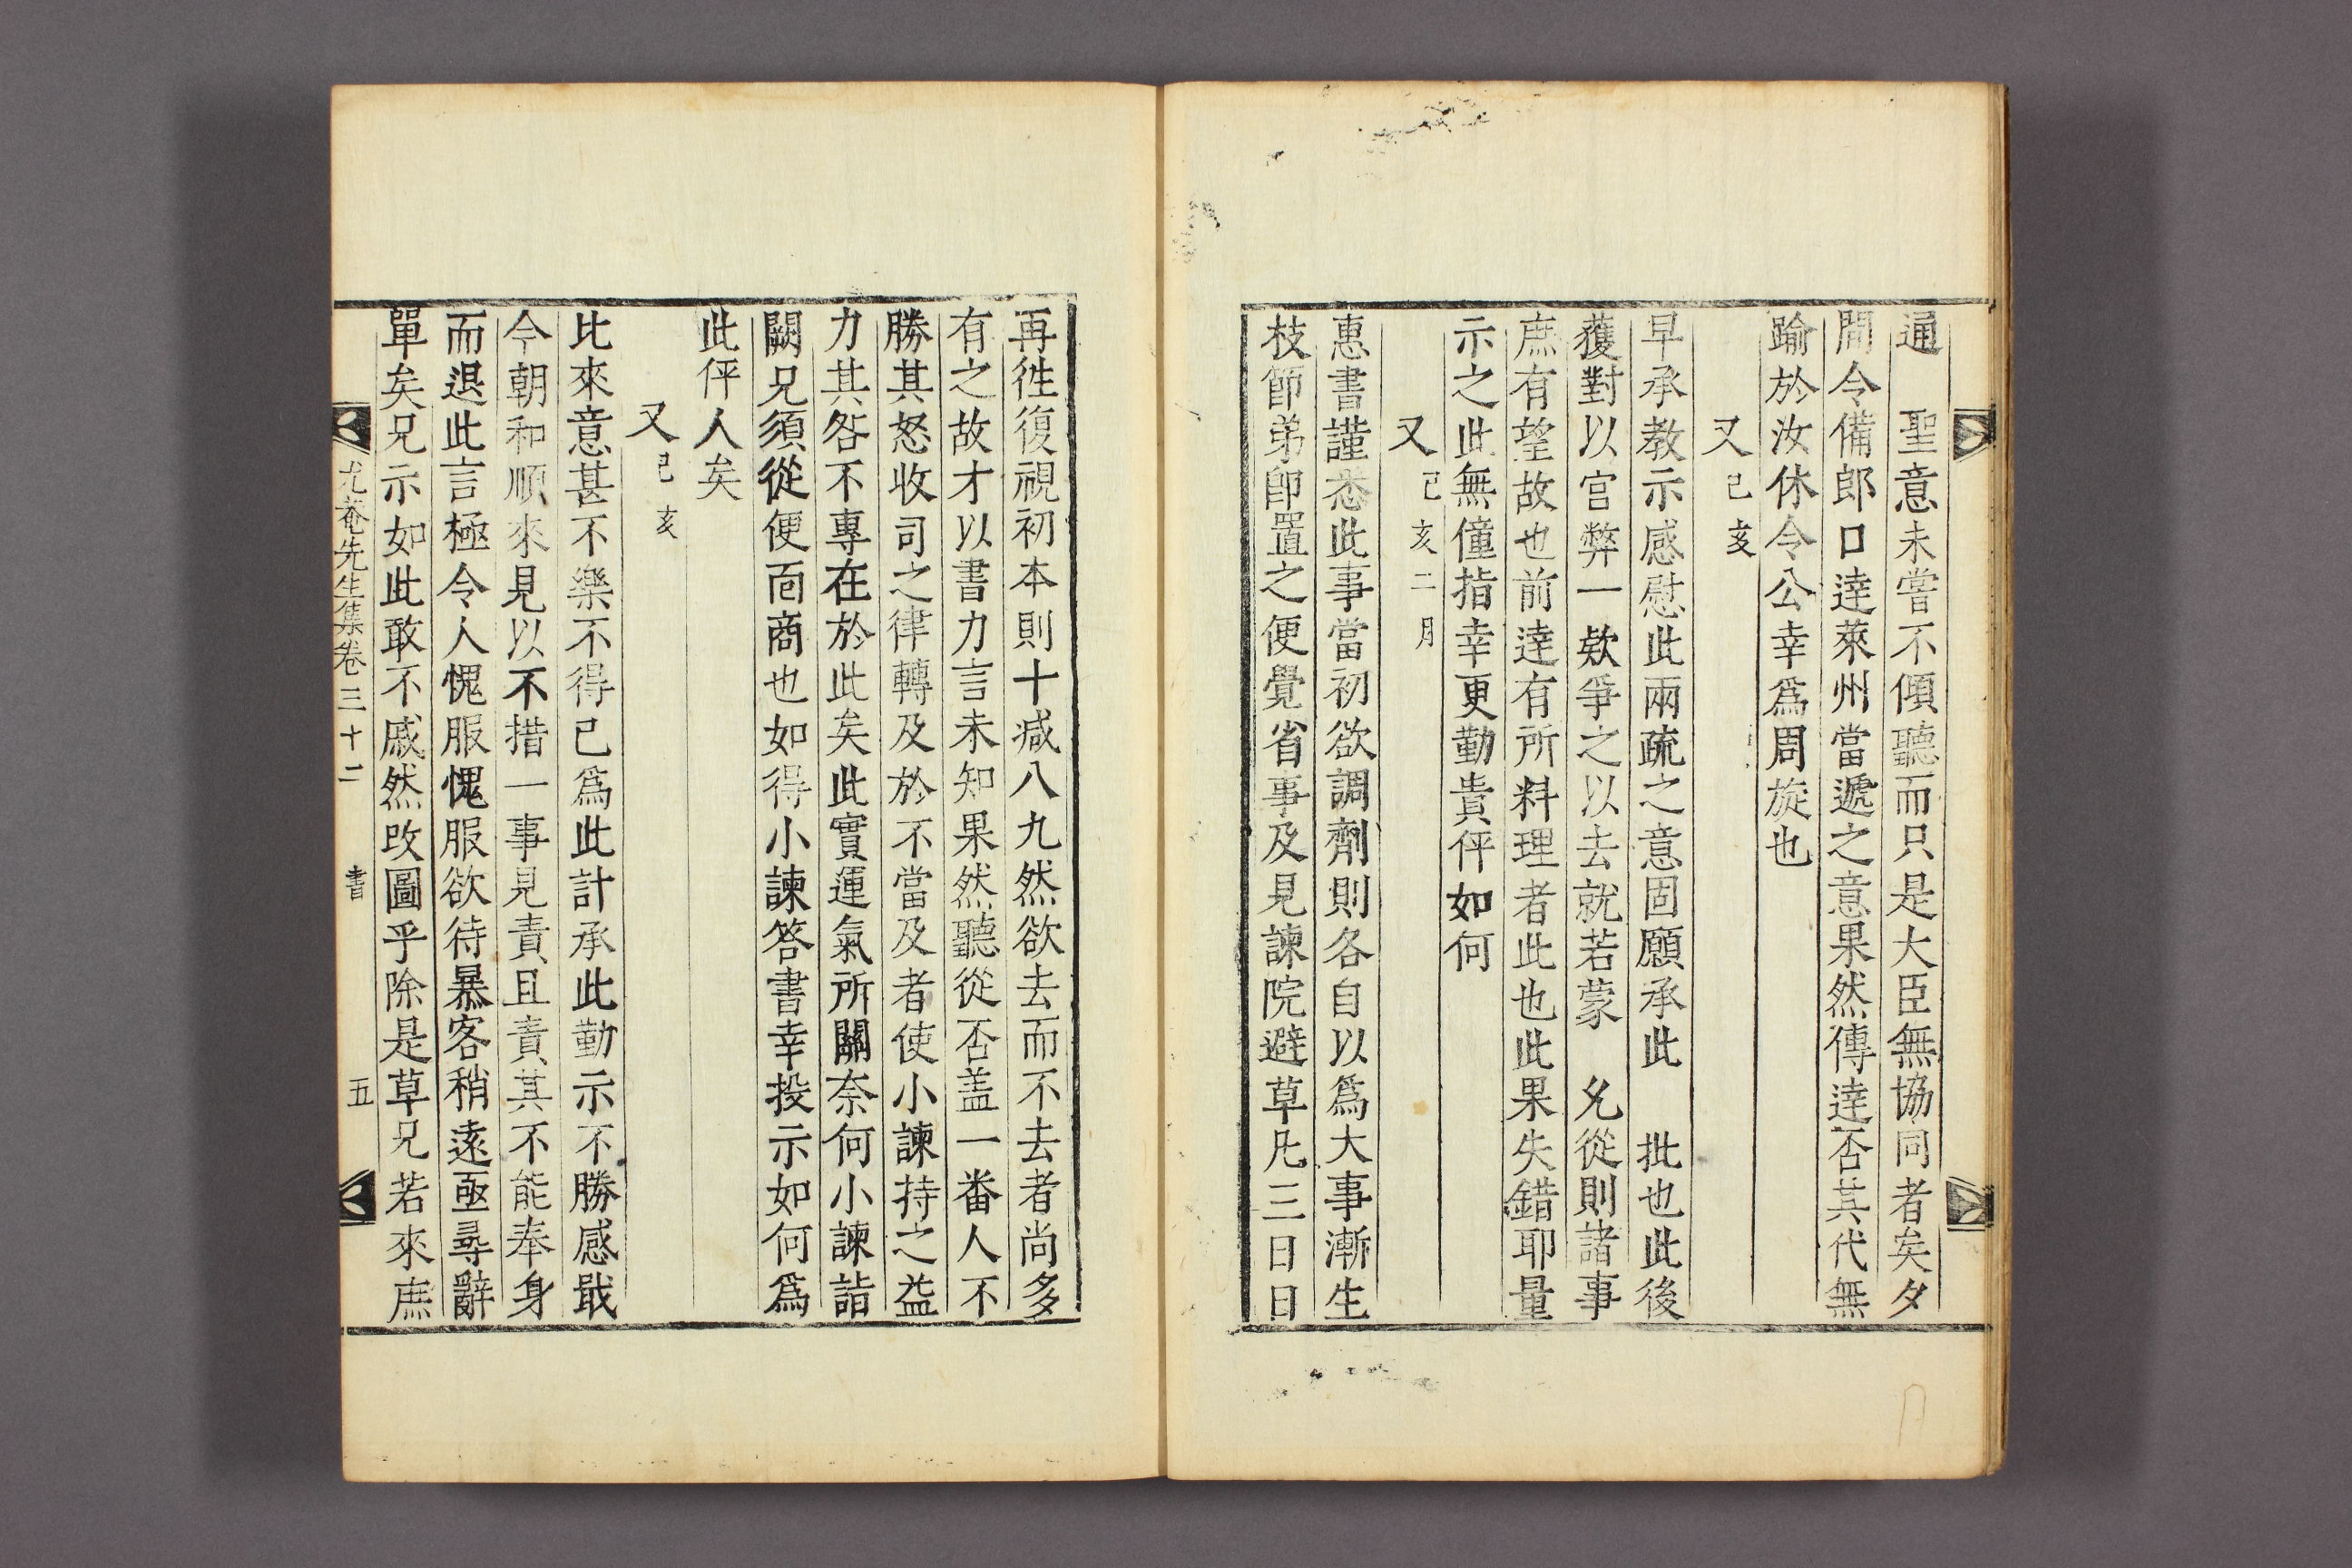 通　聖意未嘗不傾聽而只是大臣無協同者矣夕
間令備郎口達萊州當遞之意果然傳達否其代無
踰於汝休令公幸爲周旋也
又己亥
早承教示感慰此兩疏之意固願承此　批也此後
獲對以宮弊一欵爭之以去就若蒙　允從則諸事
庶有望故也前達有所料理者此也此果失錯耶量
示之此無僮指幸更勤貴伻如何
又己亥二月
惠書謹悉此事當初欲調劑則各自以爲大事漸生
枝節弟卽置之便覺省事及見諫院避草凡三日日
再徃復視初本則十減八九然欲去而不去者尚多
有之故才以書力言未知果然聽從否盖一番人不
勝其怒收司之律轉及於不當及者使小諫持之益
力其咎不專在於此矣此實運氣所關奈何小諫詣
闕兄須從便面商也如得小諫答書幸投示如何爲
此伻人矣
又己亥
比來意甚不樂不得已爲此計承此勤示不勝感戢
今朝和順來見以不措一事見責且責其不能奉身
而退此言極令人愧服愧服欲待暴客稍遠亟尋辭
單矣兄示如此敢不戚然改圖乎除是草兄若來庶
尤菴先生集卷三十二　書　五